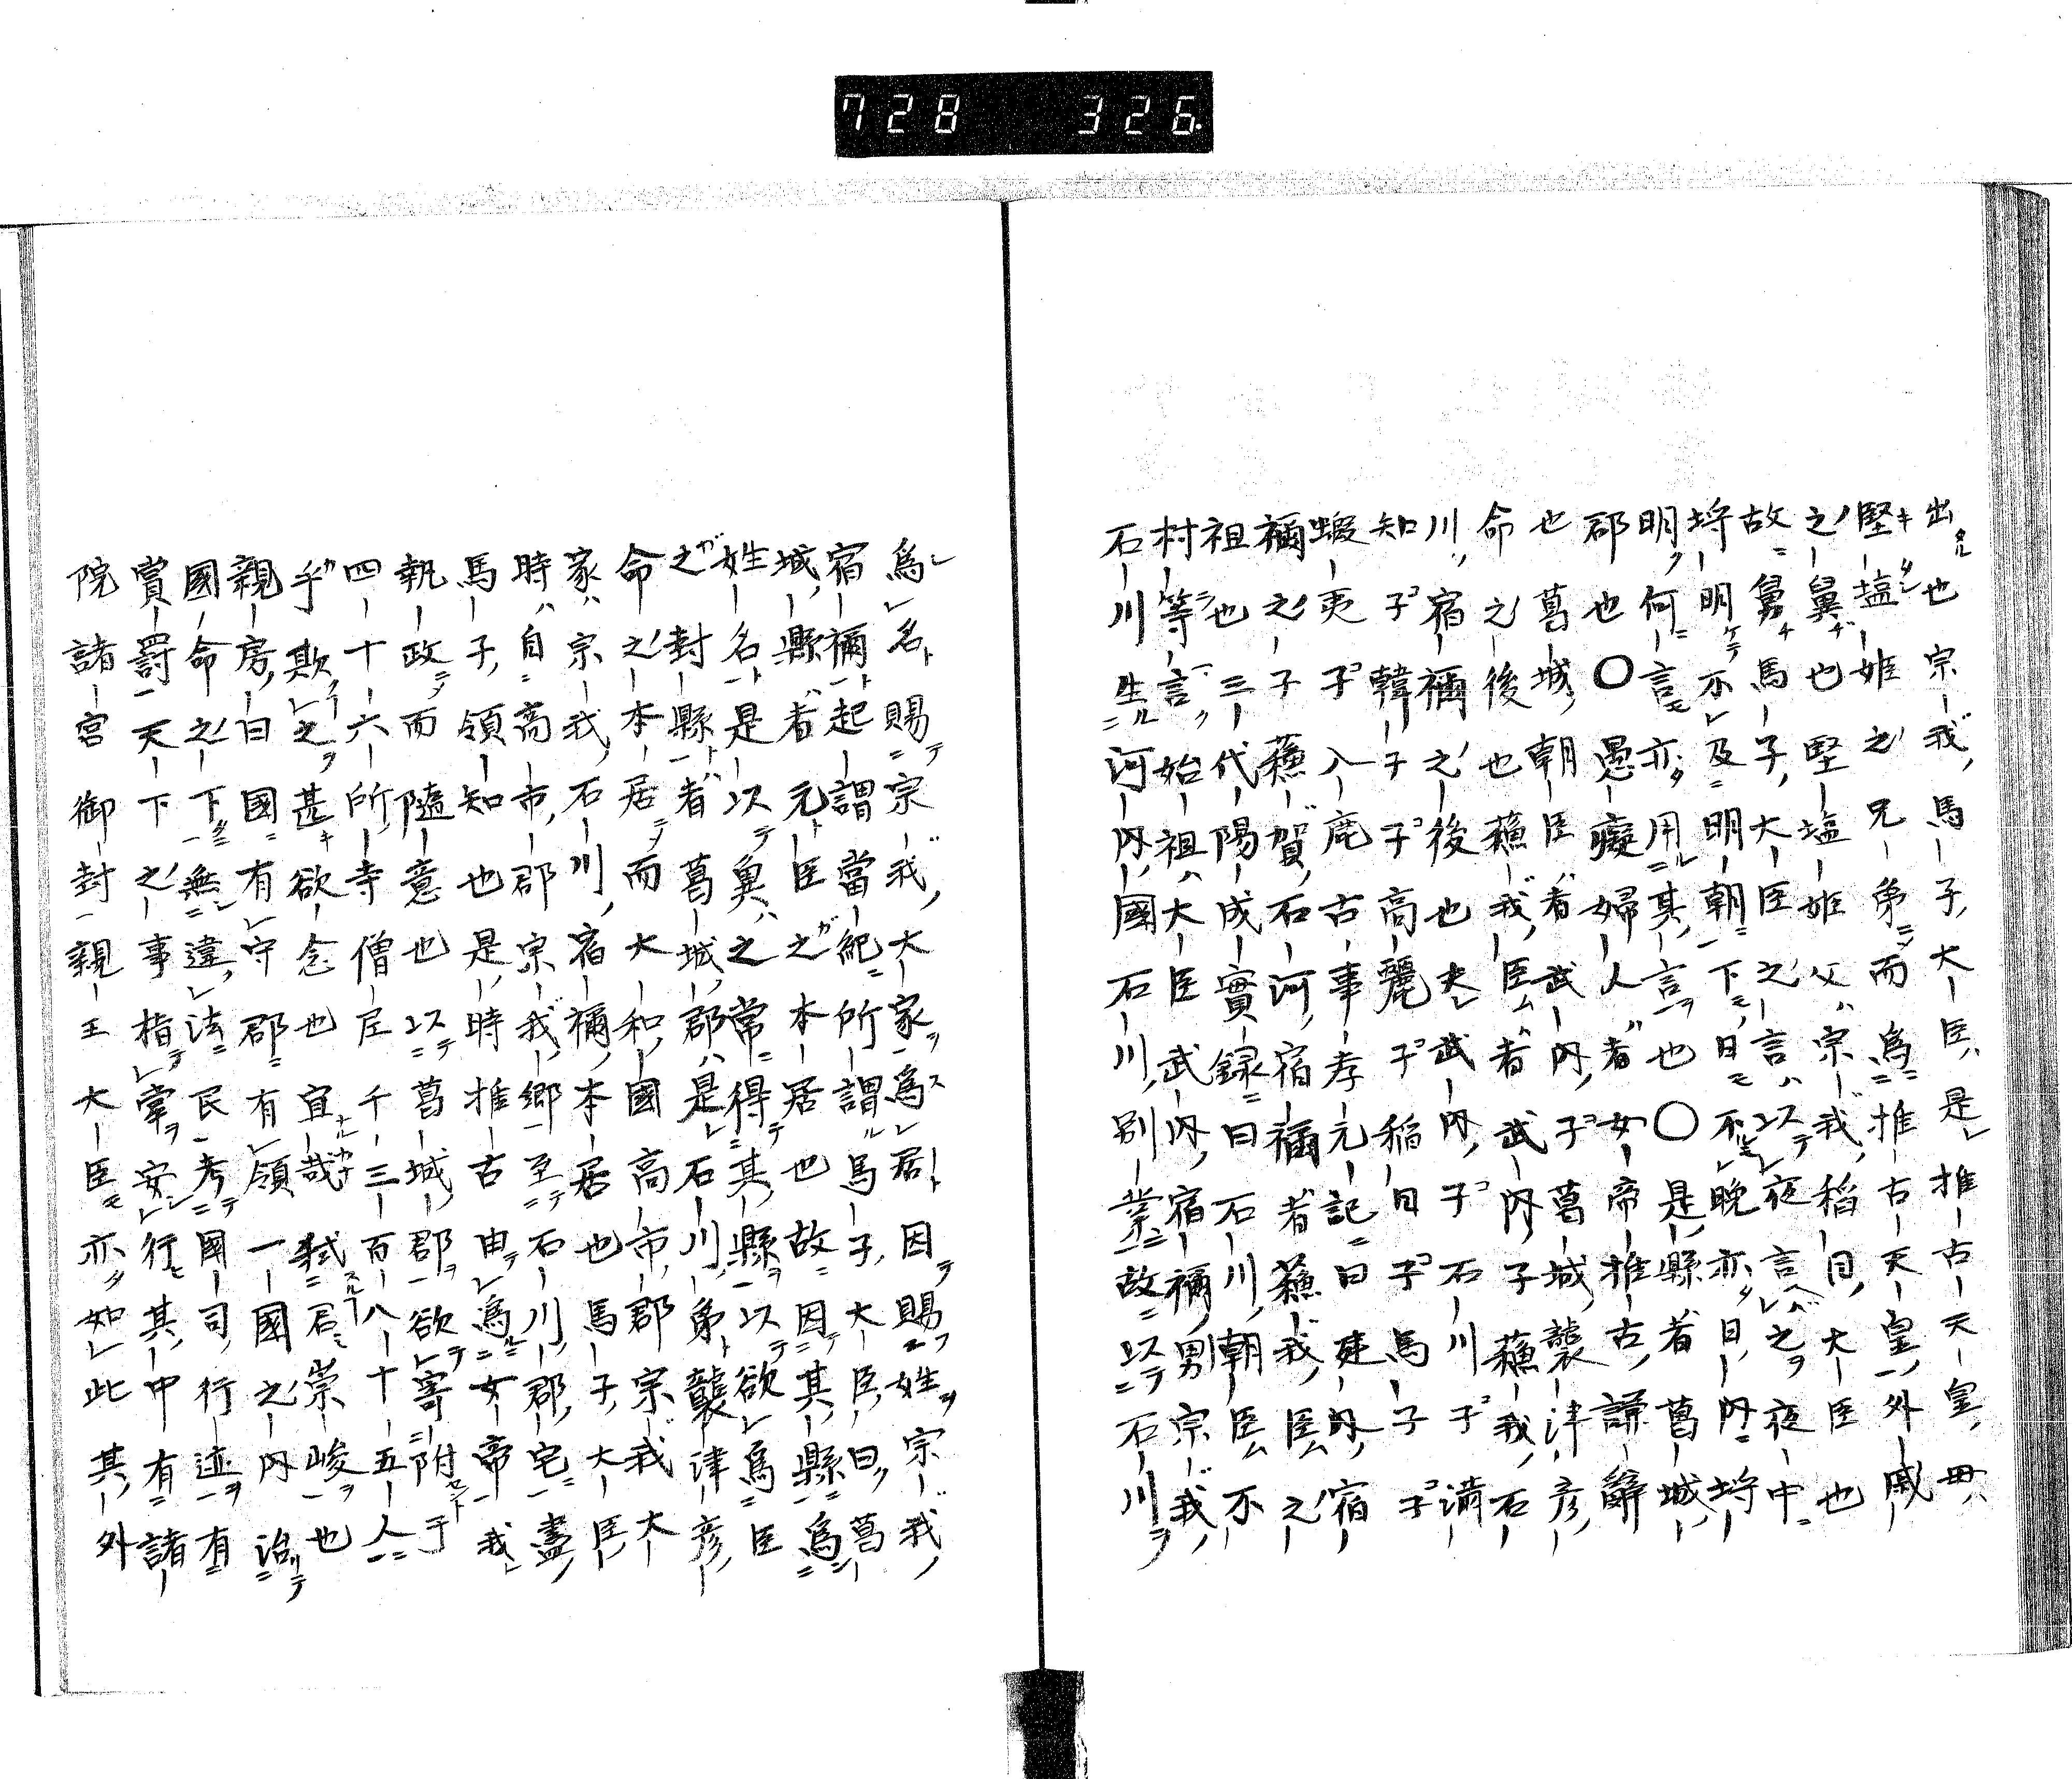 728 326
出也宗我馬子大臣是推古天皇母
堅塩姫之兄弟而為推古天皇外戚
之舅也堅塩姫父宗我稲目大臣也
故舅馬子大臣之言以夜言之夜中
㝵明不及明朝下日不晩亦日内㝵
明何言亦用其言也〇是縣者葛城
郡也〇愚癡婦人者女帝推古謙辭
也葛城朝臣者武内子葛城襲津彦
命之後也蘓我臣者武内子蘓我石
川宿禰之後也夫武内子石川子満
知子韓子子高麗子稲目子馬子子
蝦夷子入鹿古事孝元記曰建内宿
禰之子蘓賀石河宿禰者蘓我臣之
祖也三代陽成實録曰石川朝臣不
村等言始祖大臣武内宿禰男宗我
石川生河内國石川別業故以石川
為名賜宗我大家為居因賜姓宗我
宿禰起謂當紀所謂馬子大臣曰葛
城縣者元臣之本居也故因其縣為
姓名是以冀之常得其縣以欲為臣
之封縣者葛城郡是石川弟襲津彦
命之本居而大和國高市郡宗我大
家宗我石川宿禰本居也馬子大臣
時自高市郡宗我郷至石川郡宅盡
馬子領知也是時推古申為女帝我
執政而隨意也以葛城郡欲寄附于
四十六所寺僧尼千三百八十五人
乎欺之甚欲念也宜哉弑君崇峻也
親房曰國有守郡有領一國之内治
國命之下無違法民考國司行迹有
賞罰天下之事指掌安行其中有諸
院諸宮御封親王大臣亦如此其外